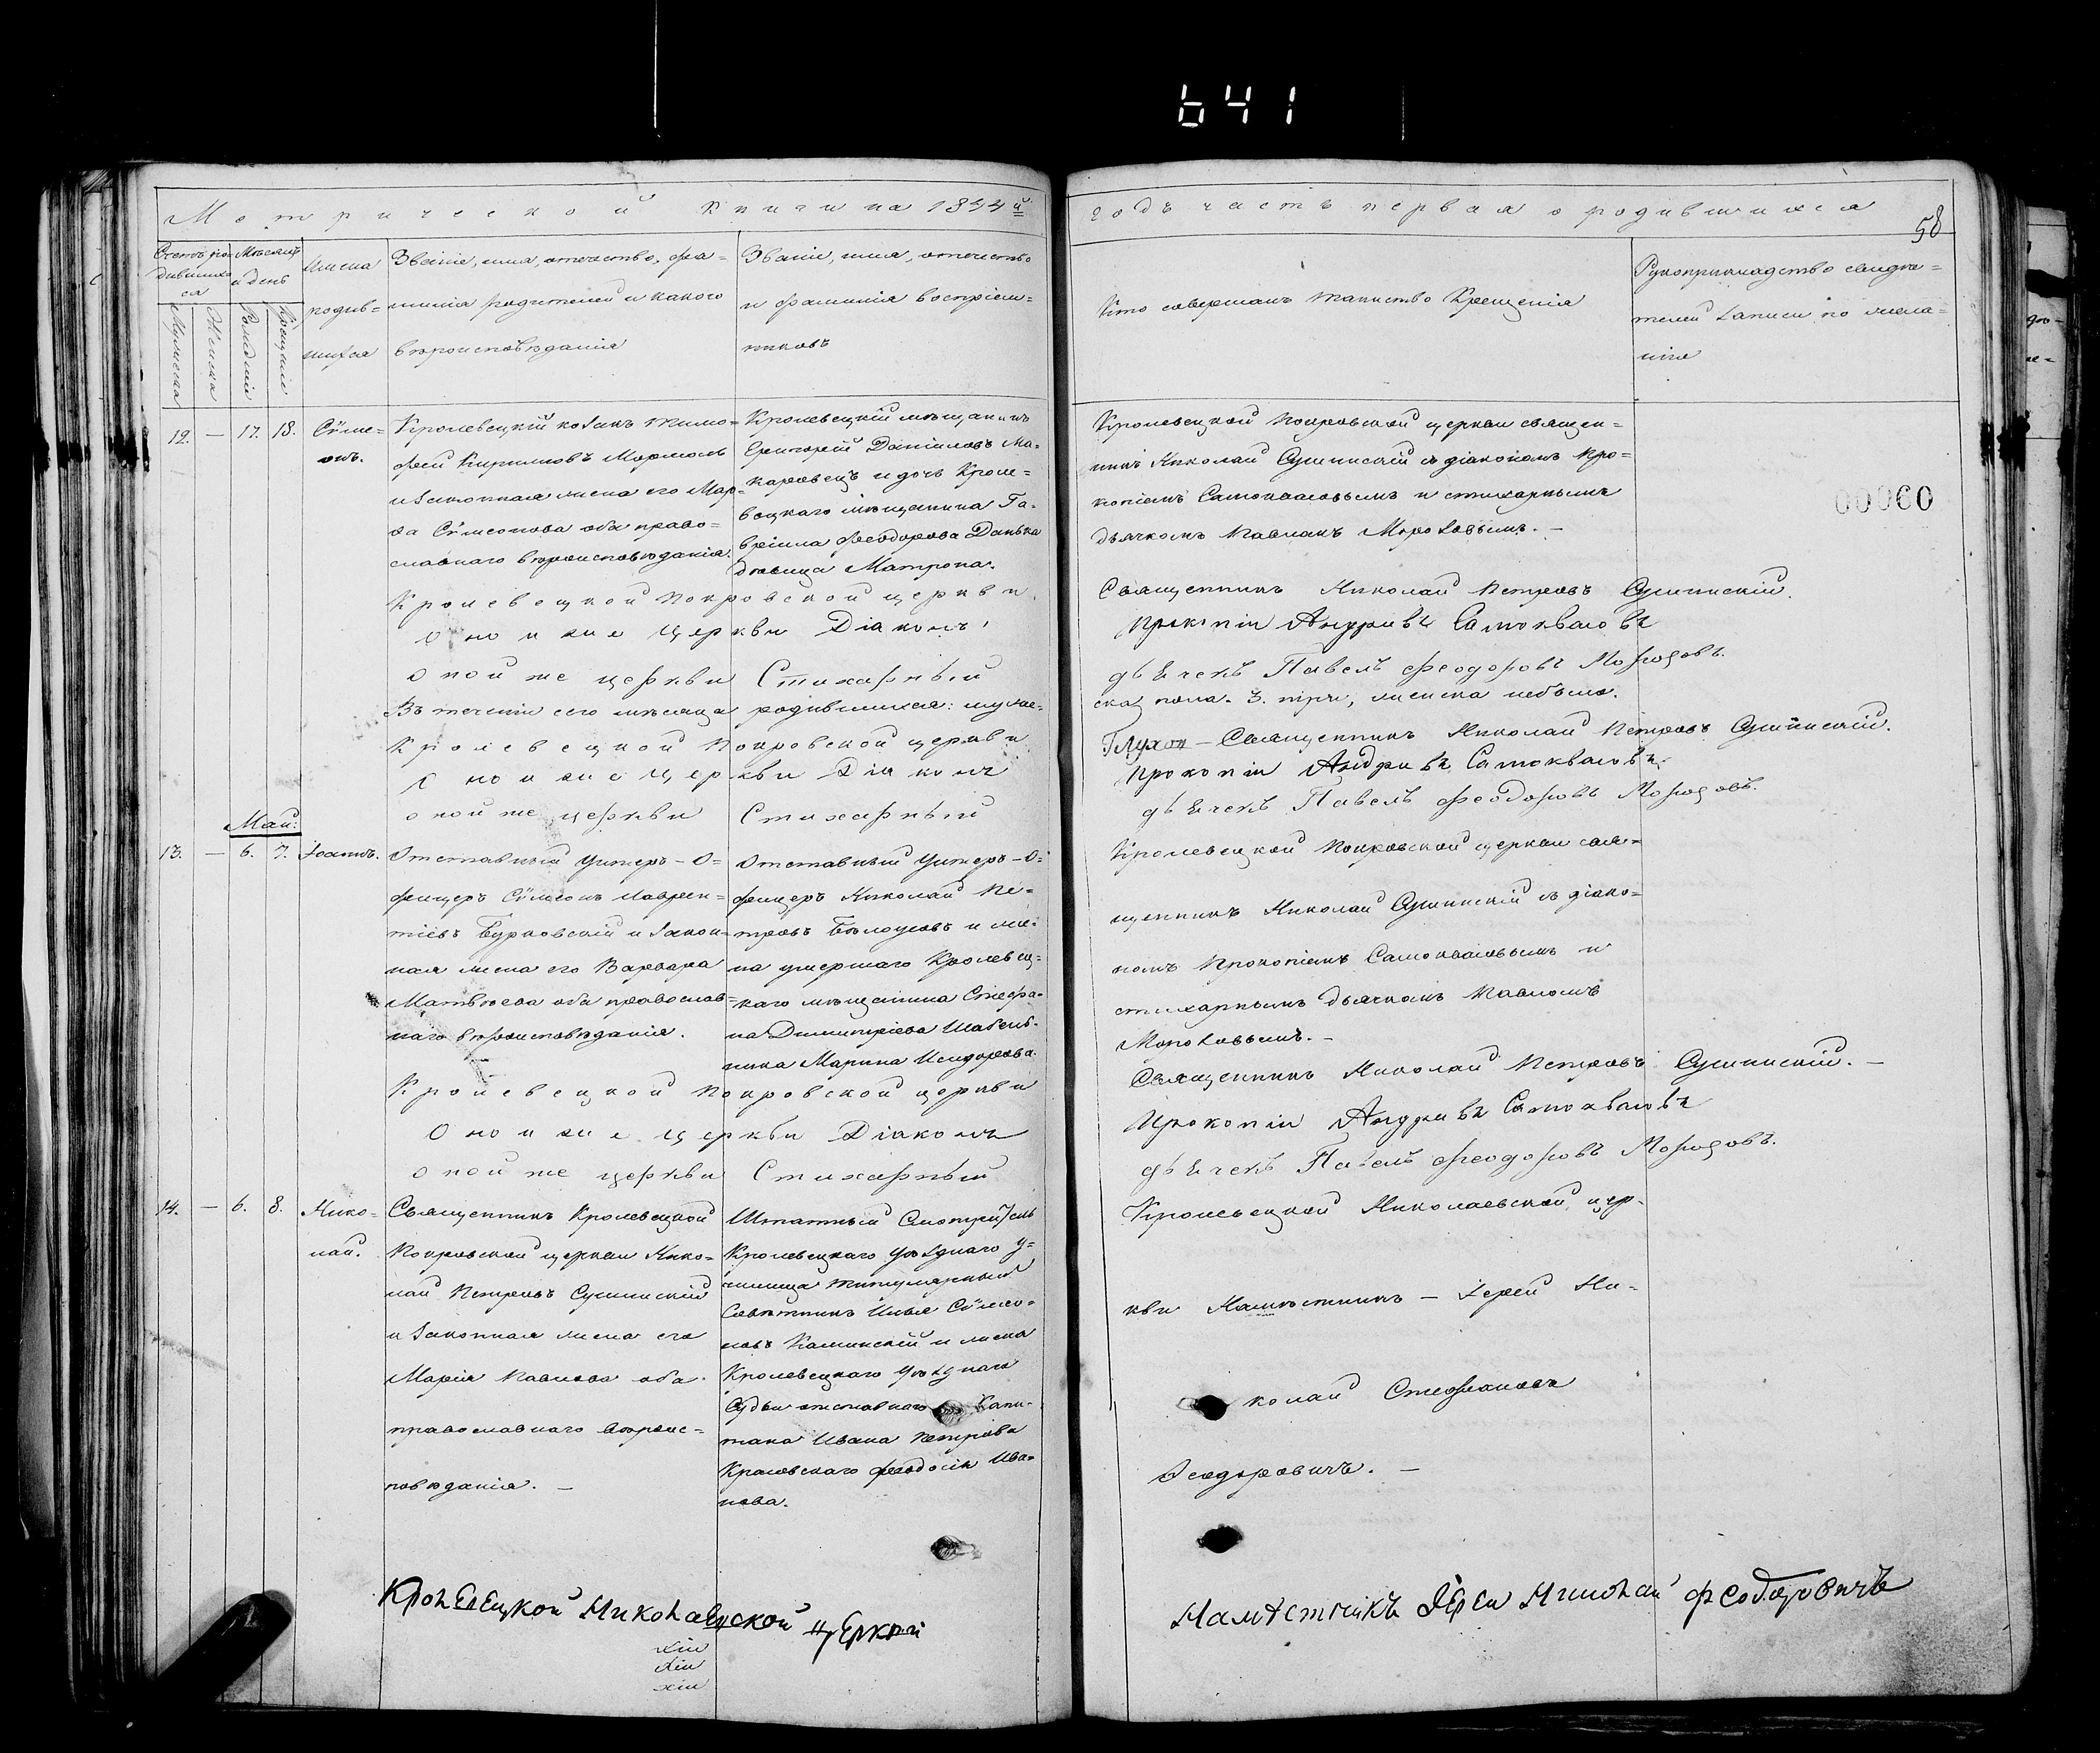 641
Метрической книги на 1844й
годъ часть первая о родившихся
58
Счетъ ро-
дивших-
ся
Мѣсяцъ
и день
Имена
родив=
шихся
Званіе, имя, отечество, фа=
милія родителей и какого
вѣроисповѣданія
Званіе, имя, отечество
и фамилія воспріем=
никовъ
Мужеска
Женска
Рожденія
Крещенія
Кто совершалъ таинство Крещенія
Рукоприкладство свидѣ=
телей записи по жела=
нію
12. — 17. 18.
Сѵме=
онъ.
Кролевецкій козакъ Тимо=
фей Кириловъ
и законная жена его Мар=
ѳа Сѵмеонова оба право=
славнаго вѣроисповѣданія.
Кролевецкій мѣщанинъ
Григорій Даніиловъ Ма=
каровецъ и дочь Кроле=
вецкаго мѣщанина Га=
вріила Феодорова Данька
дѣвица Матрона.
Кролевецкой Покровской церкви священ=
никъ Николай Сушинскій съ діакономъ Про=
копіемъ Самоквасовымъ и стихарнымъ
дьячкомъ Павломъ Морозовымъ. —
00060
Кролевецкой Покровской церкви
Священникъ Николай Петровъ Сушинскій.
Оной же церкви Діаконъ
Прокопій Андріевъ Самоквасовъ
оной же церкви Стихарный
дьячекъ Павелъ Феодоровъ Морозовъ.
Въ теченіи сего мѣсяца родившихся: муже=
ска пола. 3. три, женска небыло.
Кролевецкой Покровской церкви
Священникъ Николай Петровъ Сушинскій.
Оной же церкви Діаконъ
Прокопій Андріевъ Самоквасовъ.
оной же церкви Стихарный
дьячекъ Павелъ Феодоровъ Морозовъ.
Май:
13. — 6. 7.
Іоаннъ.
Отставный Унтеръ-О=
фицеръ Сѵмеонъ Лаврен=
тіевъ Бурковскій и закон=
ная жена его Варвара
Матвѣева оба православ=
наго вѣроисповѣданія.
Отставный Унтеръ-О=
фицеръ Николай Пе=
тровъ Бѣлоусовъ и же=
на умершаго Кролевец=
каго мѣщанина Стефа=
на Димитріева Шабель=
ника Марина Исидорова.
Кролевецкой Покровской церкви свя=
щенникъ Николай Сушинскій съ діако=
номъ Прокопіемъ Самоквасовымъ и
стихарнымъ дьячкомъ Павломъ
Морозовымъ. —
Кролевецкой Покровской церкви
Священникъ Николай Петровъ Сушинскій. —
Оной же церкви Діаконъ
Прокопій Андріевъ Самоквасовъ
оной же церкви Стихарный
дьячекъ Павелъ Феодоровъ Морозовъ.
14. — 6. 8.
Нико=
лай.
Священникъ Кролевецкой
Покровской церкви Нико=
лай Петровъ Сушинскій
и законная жена его
Марія Павлова оба
православнаго вѣроис=
повѣданія. —
Штатный Смотритель
Кролевецкаго уѣзднаго у=
чилища титулярный
Совѣтникъ Илья Сѵмео=
новъ Каминскій и жена
Кролевецкаго уѣзднаго
Судьи отставнаго Капи-
тана Ивана Петрова
Феодосія Ива=
нова.
Кролевецкой Николаевской цер-
кви Намѣстникъ — Іерей Ни-
колай Стефановъ
Ѳеодоровичъ. —
Кролевецкой Николаевской церкви
Намѣстникъ Іерей Николай Феодоровичъ